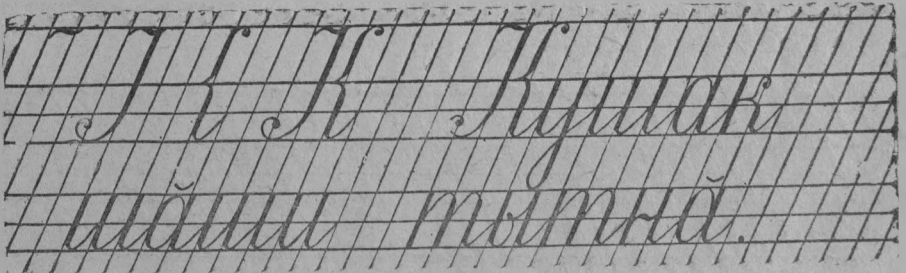 К Кушак
шӑши тытнӑ.